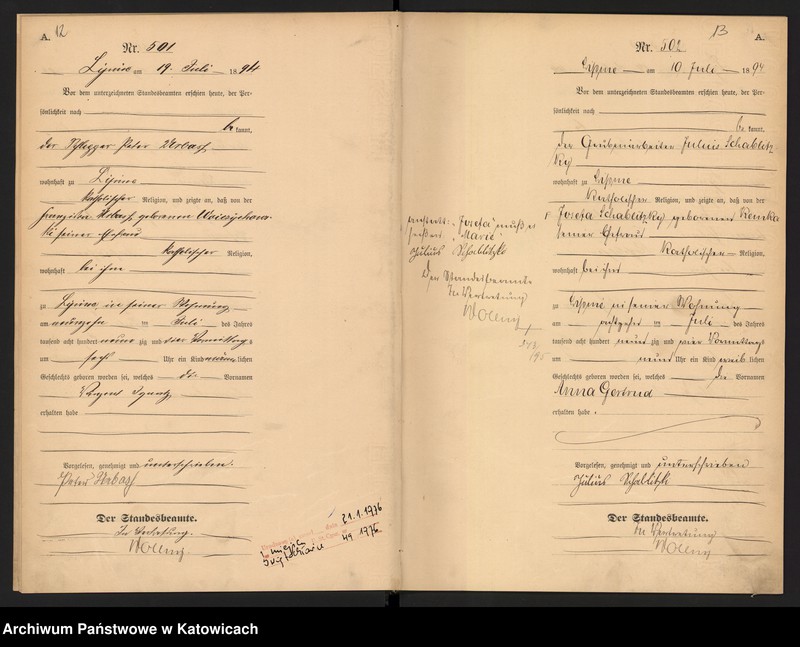 A. 12
Nr. 501
Lipine am 19. Juli 1894
Vor dem unterzeichneten Standesbeamten erschien heute, der Per-
sönlichkeit nach
be kannt,
der Peter Urbas
wohnhaft zu Lipine
katholischer Religion, und zeigte an, daß von der
Franziska Urbas, geborenen
seiner Ehefrau
katholischer Religion,
wohnhaft bei ihm
zu Lipine, in seiner Wohnung
am neunzehn ten Juli des Jahres
tausend acht hundert neunzig und vier Vormittags
um sechs Uhr ein Kind männlichen
Geschlechts geboren worden sei, welches die Vornamen
Vinzent Ignatz
erhalten habe
Vorgelesen, genehmigt und unterschrieben.
Peter Urbas
Der Standesbeamte.
In Vertretung.
Wolny
21.1.1976
49 1975
13 A.
Nr. 502
Lipine am 10 Juli 1894
Vor dem unterzeichneten Standesbeamten erschien heute, der Per-
sönlichkeit nach
be kannt,
der Grubenarbeiter Julius Schablitz-
ky
wohnhaft zu Lipine
Katholischer Religion, und zeigte an, daß von der
Josefa Schablitzky geborenen
seiner Ehefrau
Katholischer Religion,
wohnhaft bei ihm
zu Lipine in seiner Wohnung
am ten Juli des Jahres
tausend acht hundert neun zig und vier Vormittags
um neun Uhr ein Kind weib lichen
Geschlechts geboren worden sei, welches die Vornamen
Anna Gertrud
erhalten habe.
Vorgelesen, genehmigt und unterschrieben
Julius Schablitzki
Der Standesbeamte.
In Vertretung
Wolny
"Josefa"
"Marie"
Julius Schablitzki
Der Standesbeamte
In Vertretung
Wolny
Archiwum Państwowe w Katowicach